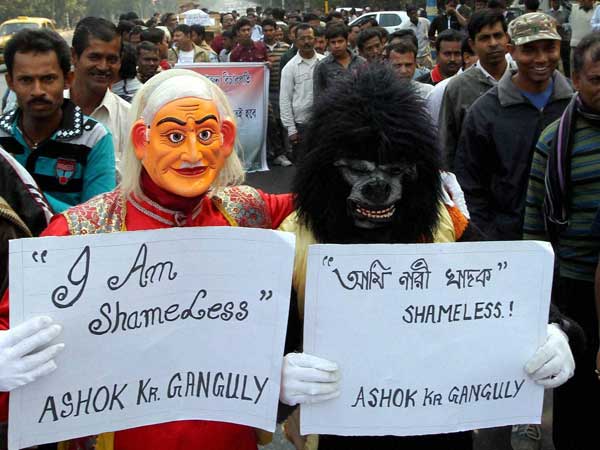 "I Am
ShameLess"
ASHOK Kr. GANGULY
"আমি নারী খাদক"
SHAMELESS.!
ASHOK Kr GANGULY